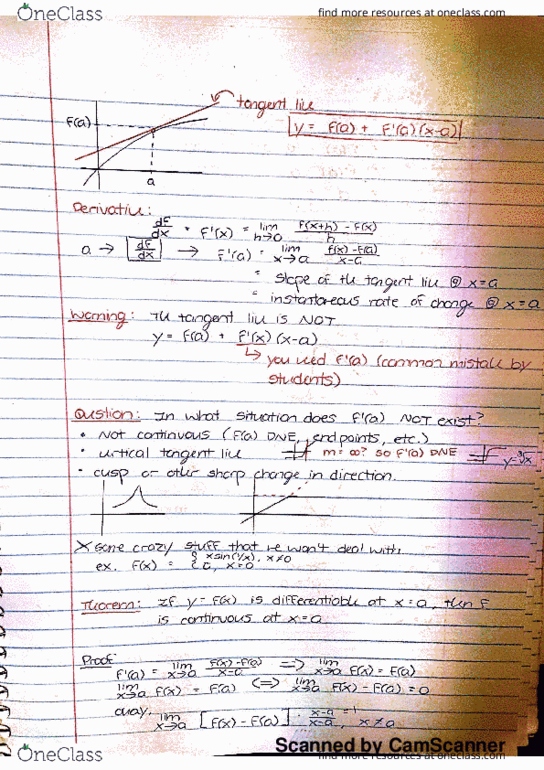 OneClass
find more resources at oneclass.com
tangent line
F(a)
y = F(a) + F'(a)(x-a)
a
Derivative:
dF/dx = F'(x) = lim h→0 F(x+h) - F(x) / h
a → dF/dx → F'(a) = lim x→a F(x) - F(a) / x-a
= slope of the tangent line @ x=a
= instantaneous rate of change @ x=a
Warning: The tangent line is NOT
y = F(a) + F'(x)(x-a)
↳ you need F'(a) (common mistake by
students)
Question: In what situation does F'(a) NOT exist?
• Not continuous (F(a) DNE, endpoints, etc.)
• vertical tangent line m = ∞? so F'(a) DNE y=∛x
• cusp or other sharp change in direction.
* some crazy stuff that we won't deal with.
ex. F(x) = { x sin(1/x), x≠0
0, x=0
Theorem: If y = F(x) is differentiable at x=a, then F
is continuous at x=a
Proof:
F'(a) = lim x→a F(x)-F(a) / x-a => lim x→a F(x) = F(a)
lim x→a F(x) = F(a) <=> lim x→a F(x) - F(a) = 0
okay.
lim x→a [F(x) - F(a)] · x-a / x-a =1, x≠a
Scanned by CamScanner
OneClass
find more resources at oneclass.com